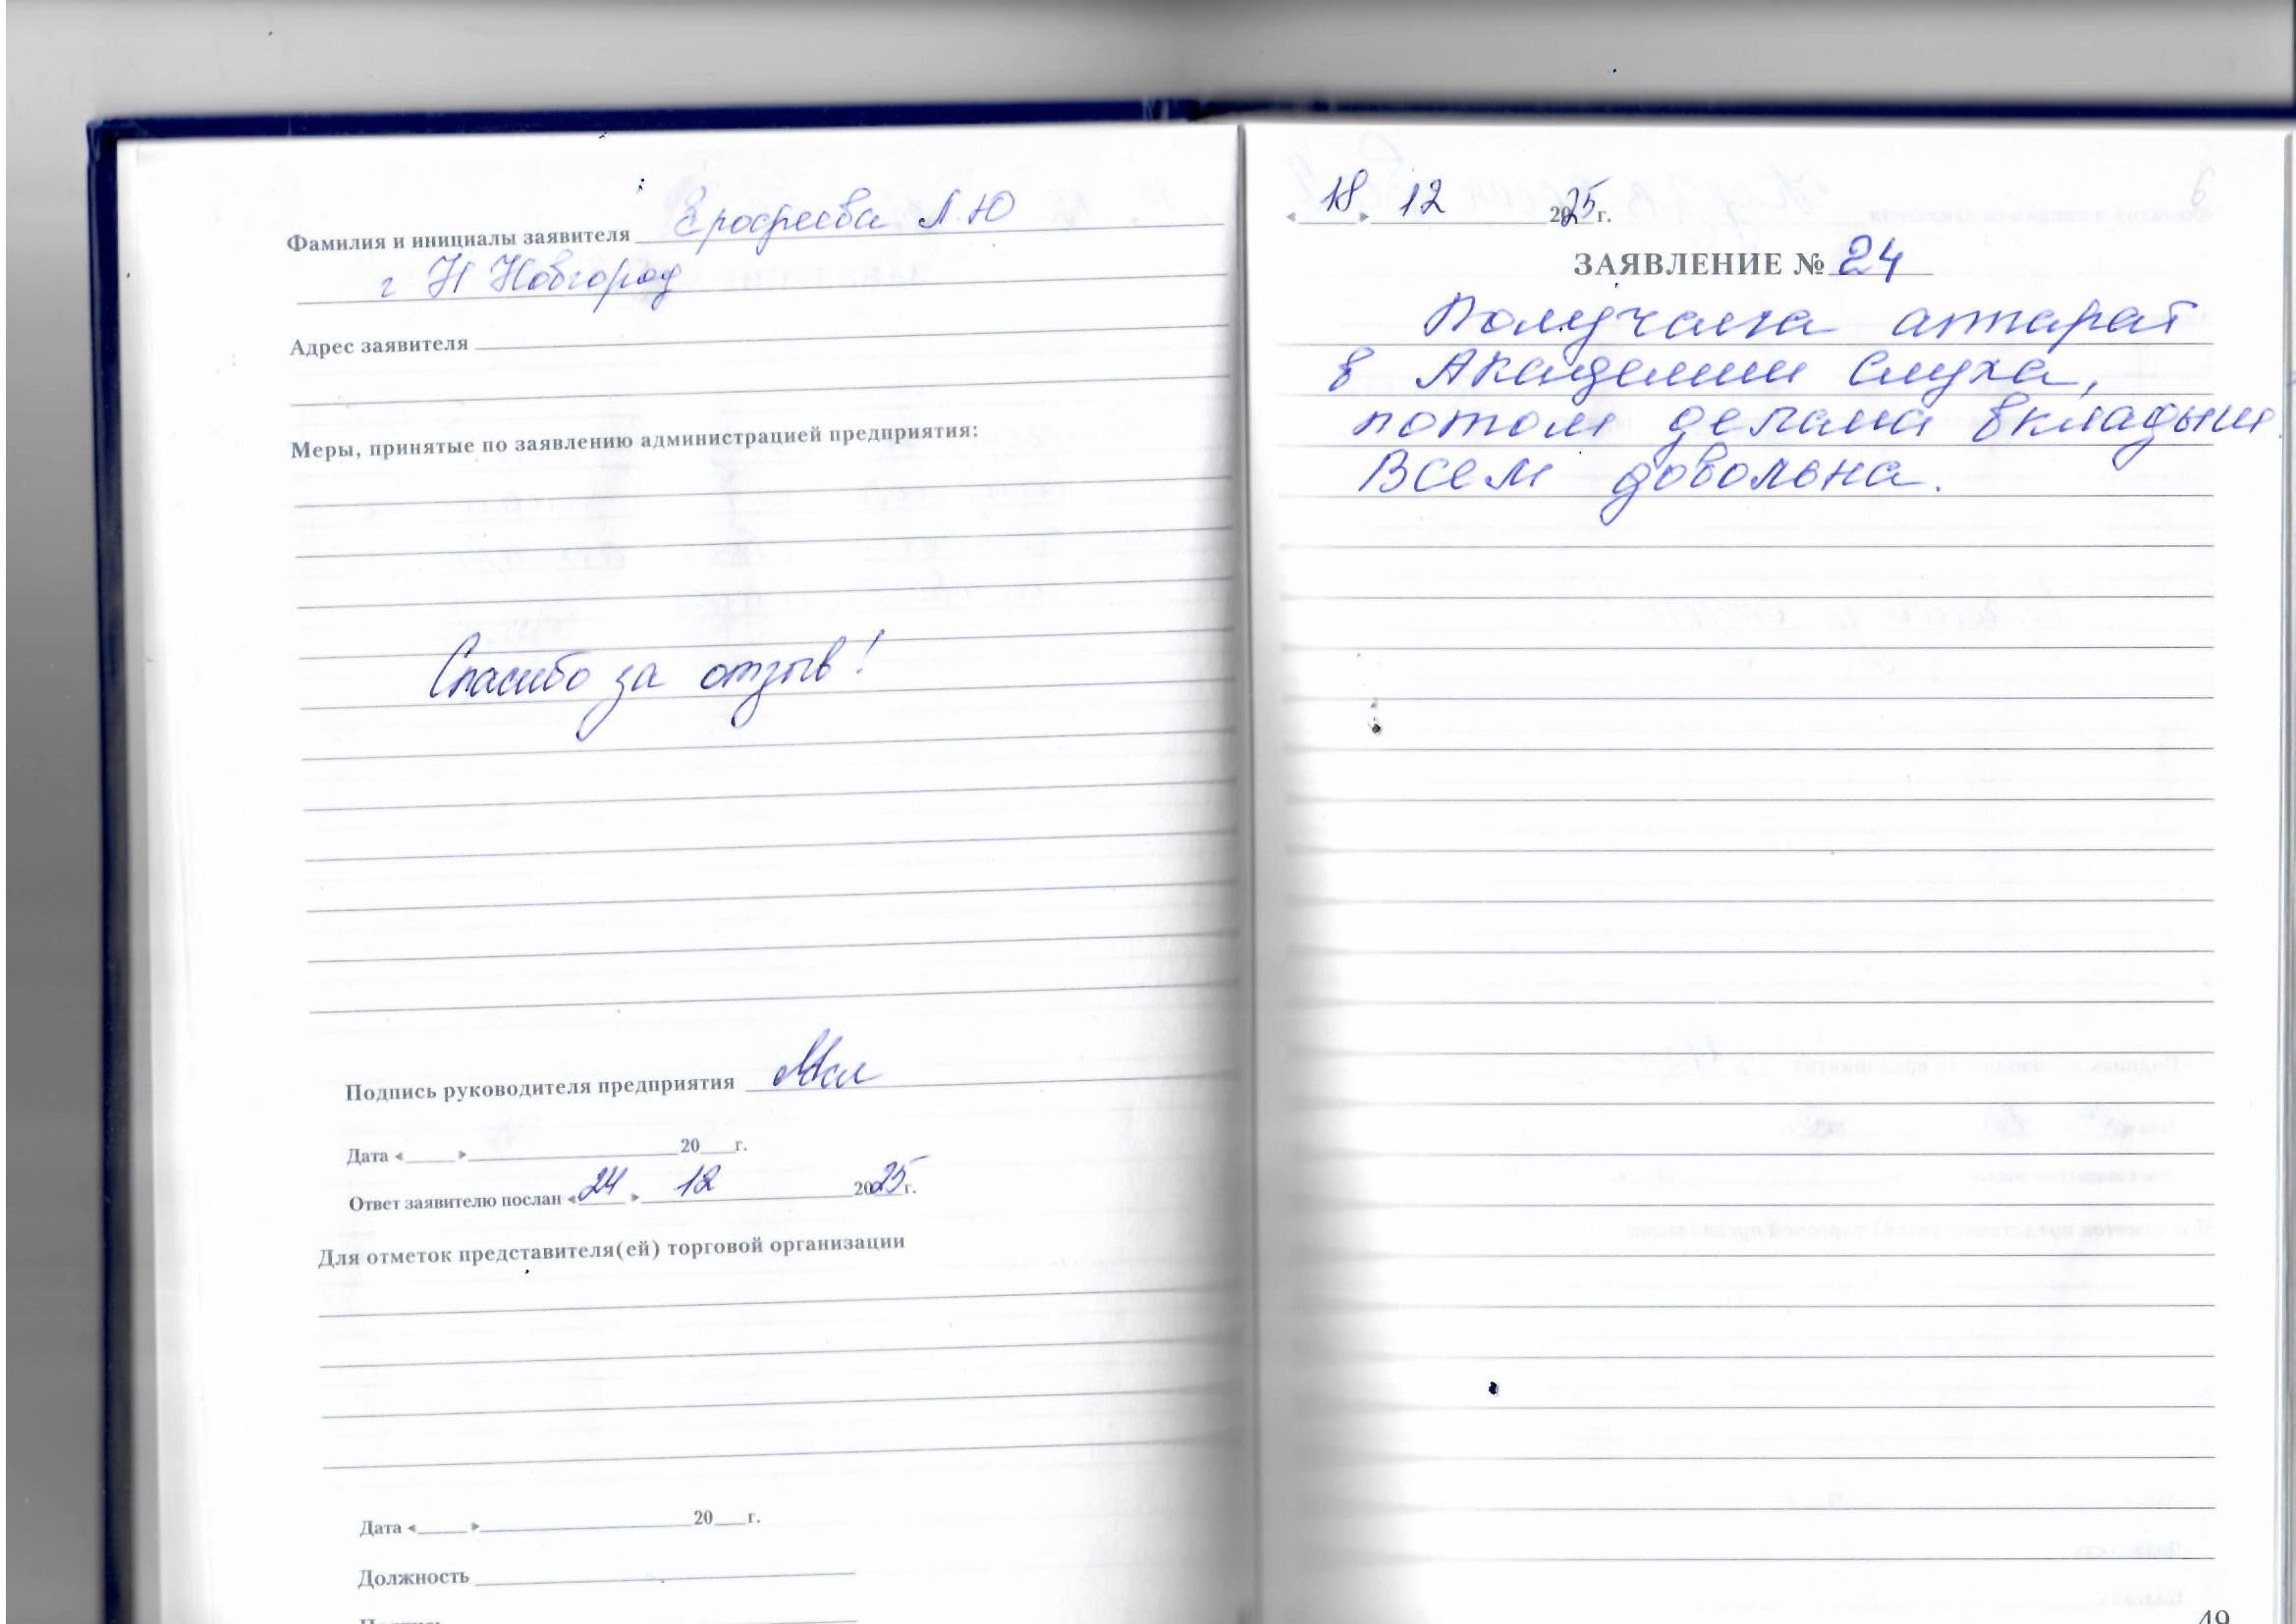 Фамилия и инициалы заявителя Ерофеева Л Ю
г Н Новгород
Адрес заявителя
Меры, принятые по заявлению администрацией предприятия:
Спасибо за отзыв!
Подпись руководителя предприятия
Дата «____» ____ 20__г.
Ответ заявителю послан «24» 12 2025г.
Для отметок представителя(ей) торговой организации
Дата «____» ____ 20__г.
Должность
«18» 12 2025 г.
ЗАЯВЛЕНИЕ № 24
Получала аппарат
в Академии Слуха,
потом делала вкладыш.
Всем довольна.
49